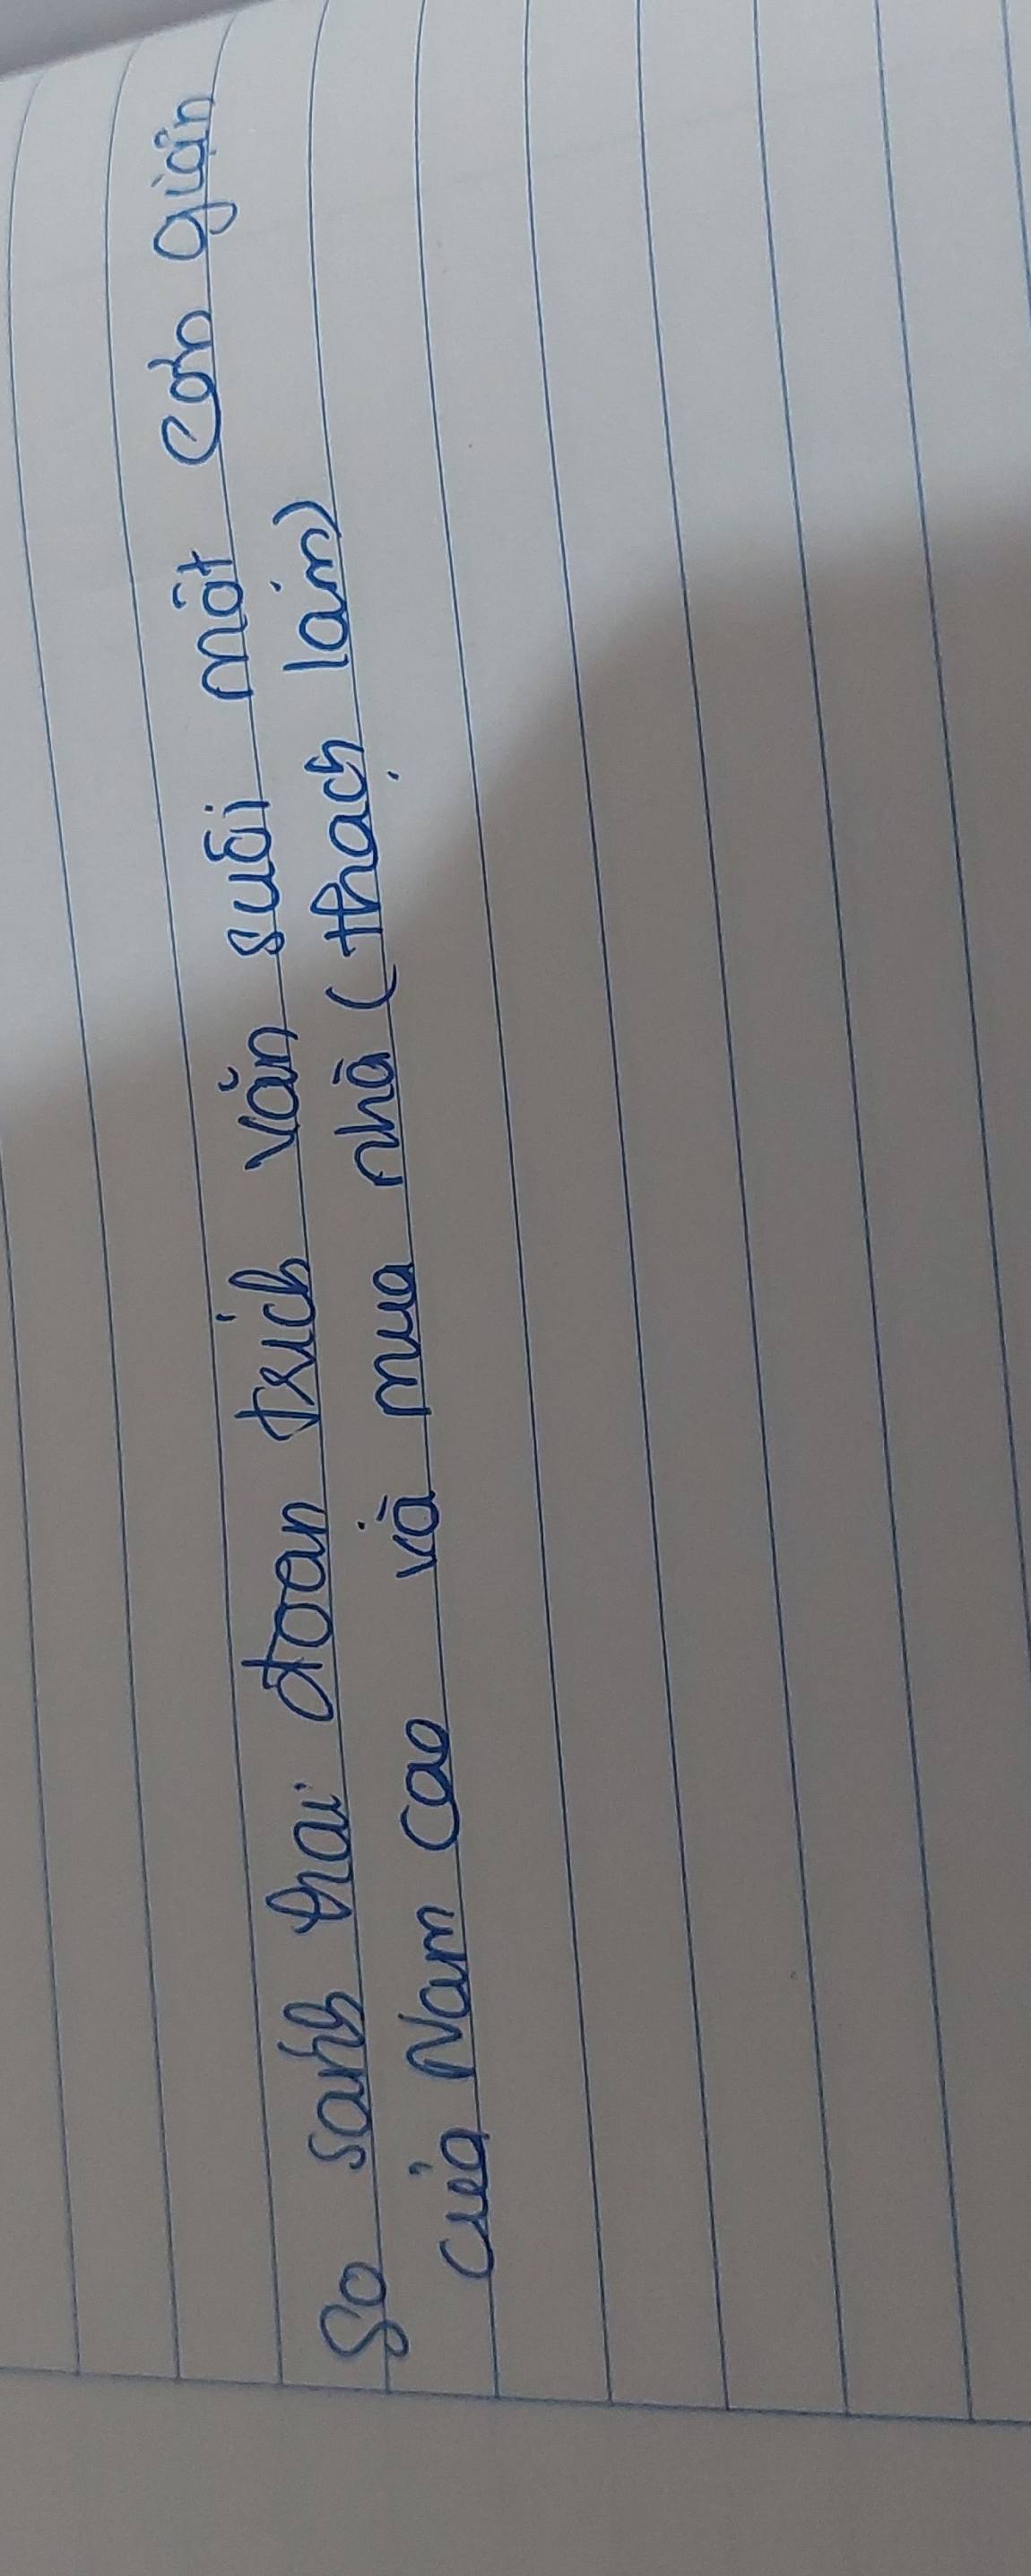 So sánh hai đoạn trích văn suôi một cơn giận
của Nam Cao và mua nhà (thạch lam)